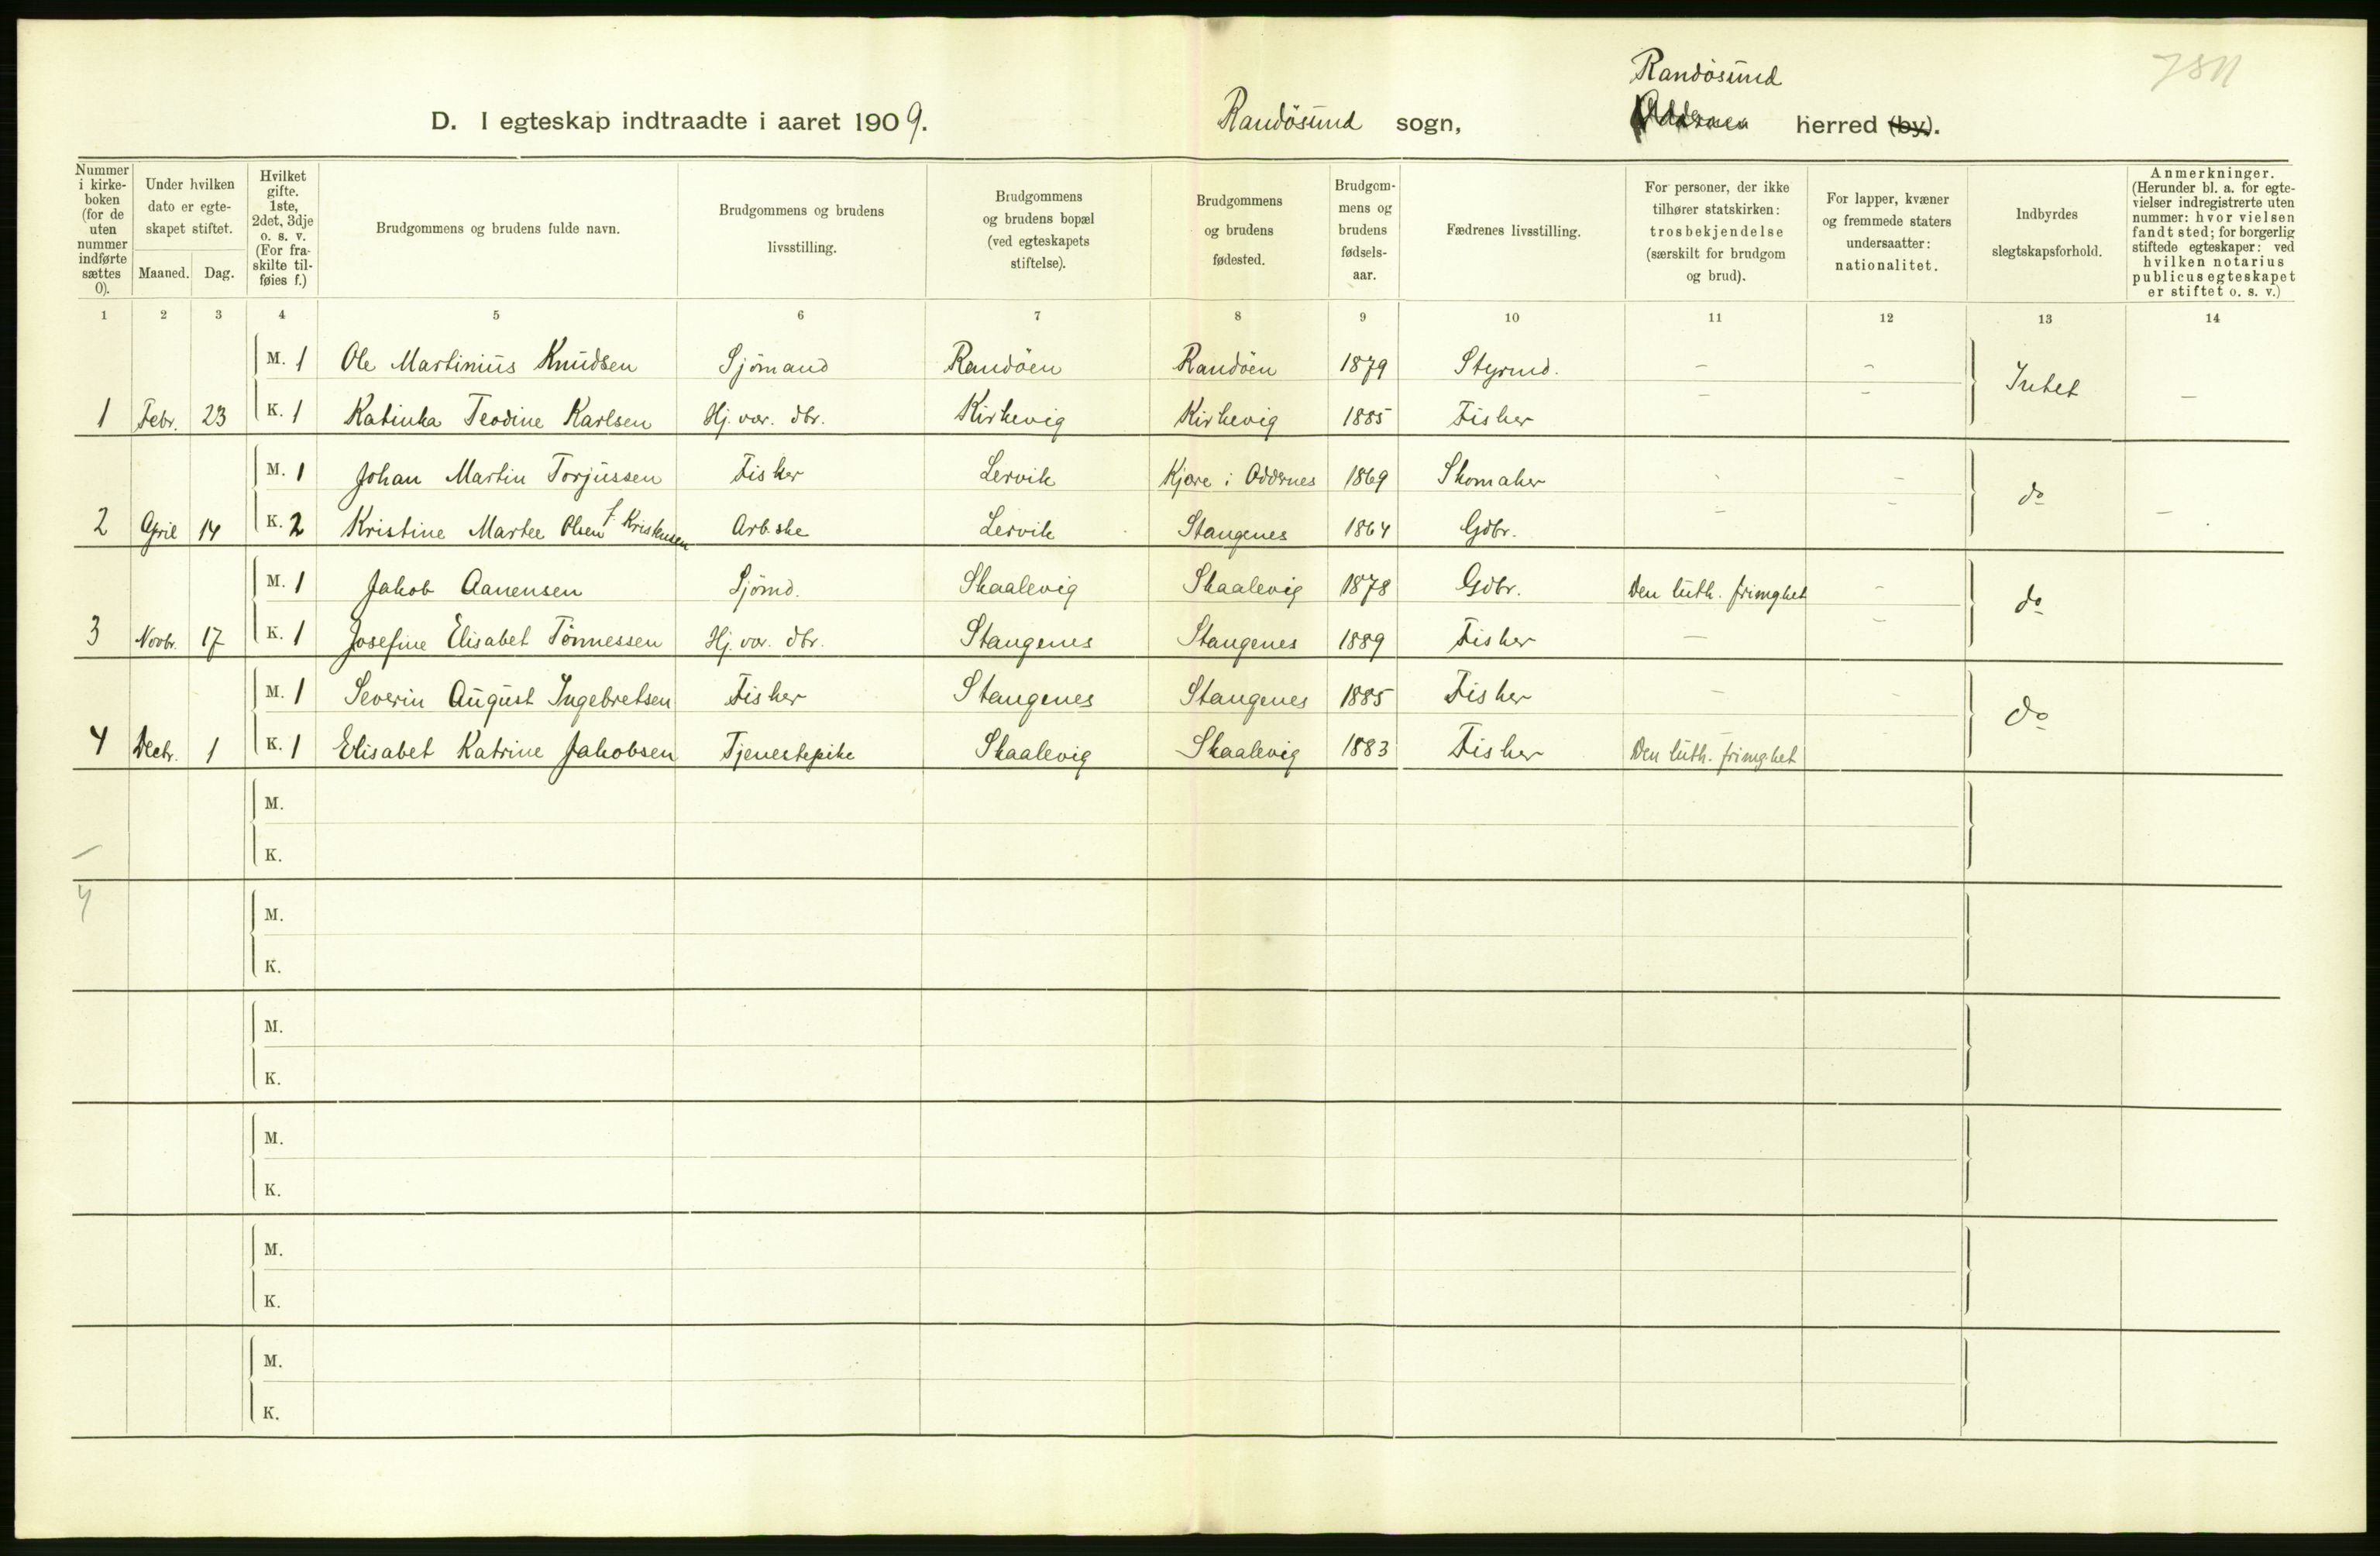 7811
Randösund
D. I egteskap indtraadte i aaret 1909. Randösund sogn, herred (by).
Nummer i kirke-boken (for de uten nummer indførte sættes 0).
Under hvilken dato er egte-skapet stiftet.
Maaned. Dag.
Hvilket gifte. 1ste, 2det, 3dje o. s. v. (For fra-skilte til-føies f.)
Brudgommens og brudens fulde navn.
Brudgommens og brudens livsstilling.
Brudgommens og brudens bopæl (ved egteskapets stiftelse).
Brudgommens og brudens fødested.
Brudgom-mens og brudens fødsels-aar.
Fædrenes livsstilling.
For personer, der ikke tilhører statskirken: trosbekjendelse (særskilt for brudgom og brud).
For lapper, kvæner og fremmede staters undersaatter: nationalitet.
Indbyrdes slegtskapsforhold.
Anmerkninger. (Herunder bl. a. for egte-vielser indregistrerte uten nummer: hvor vielsen fandt sted; for borgerlig stiftede egteskaper: ved hvilken notarius publicus egteskapet er stiftet o. s. v.)
1 2 3 4 5 6 7 8 9 10 11 12 13 14
M. 1 Ole Martinius Knudsen Sjömand Randöen Randöen 1879 Styrmd. - - Intet
1 Febr. 23 K. 1 Katinka Teodine Karlsen Hj. vær. dtr. Kirkevig Kirkevig 1885 Fisker - - -
M. 1 Johan Martin Torjussen Fisker Lervik Kjøre i Oddernes 1869 Skomaker - - do
2 April 14 K. 2 Kristine Martee Olsen f. Kristensen Arb.ske Lervik Stangenes 1864 Gdbr. - - -
M. 1 Jakob Aanensen Sjömd. Skaalevig Skaalevig 1878 Gdbr. Den luth. frimghet - do
3 Novbr. 17 K. 1 Josefine Elisabet Tönnessen Hj. vær. dtr. Stangenes Stangenes 1889 Fisker - -
M. 1 Severin August Ingebretsen Fisker Stangenes Stangenes 1885 Fisker - - do
4 Decbr. 1 K. 1 Elisabet Katrine Jakobsen Tjenestepike Skaalevig Skaalevig 1883 Fisker Den luth. frimg.het -
M.
K.
4
M.
K.
M.
K.
M.
K.
M.
K.
M.
K.